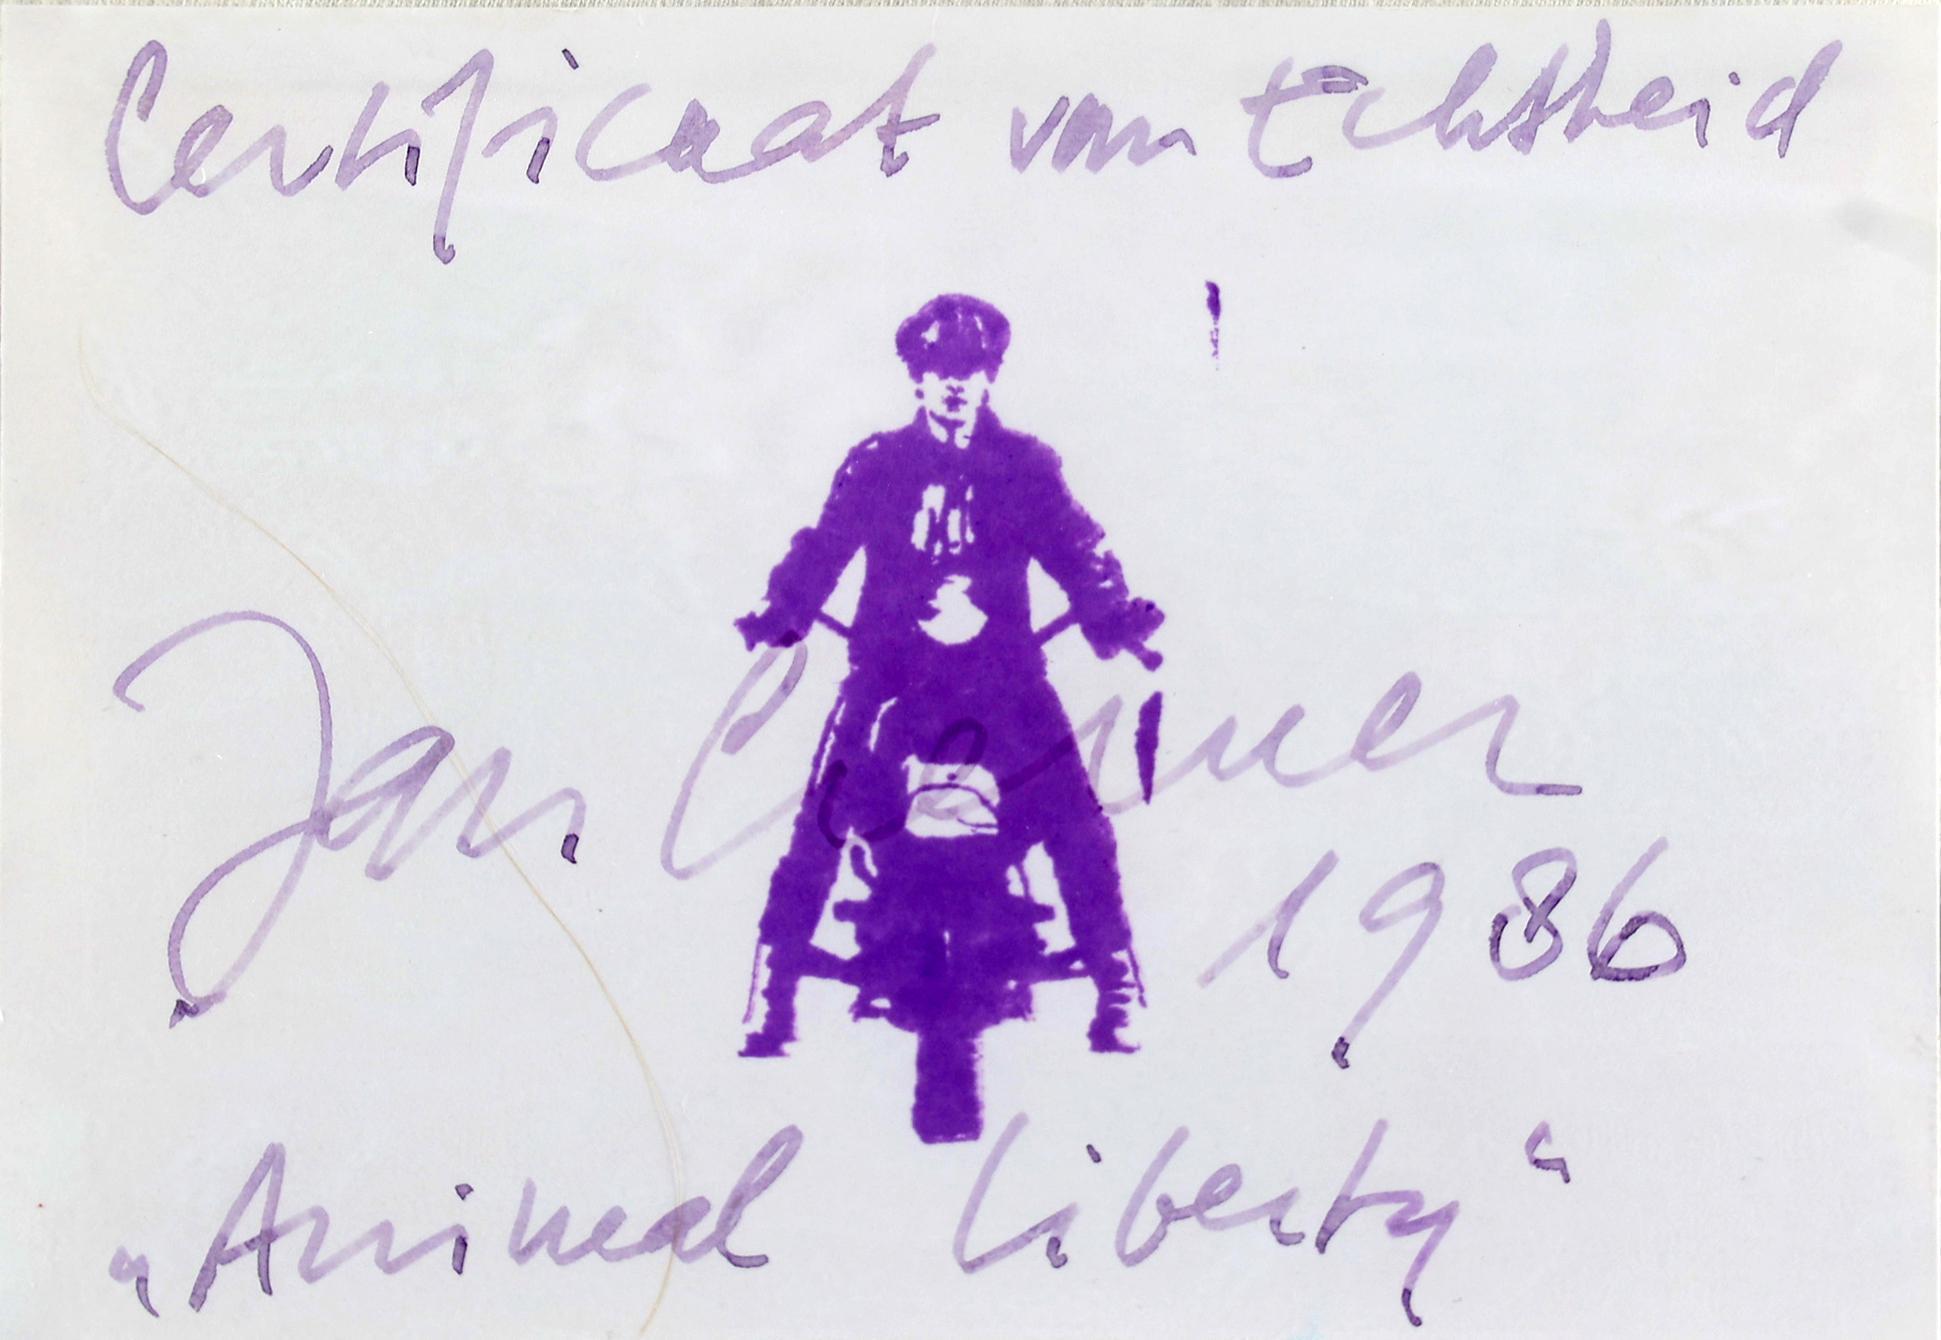 Certificaat van Echtheid
Jan Cremer
1986
„Animal Liberty“